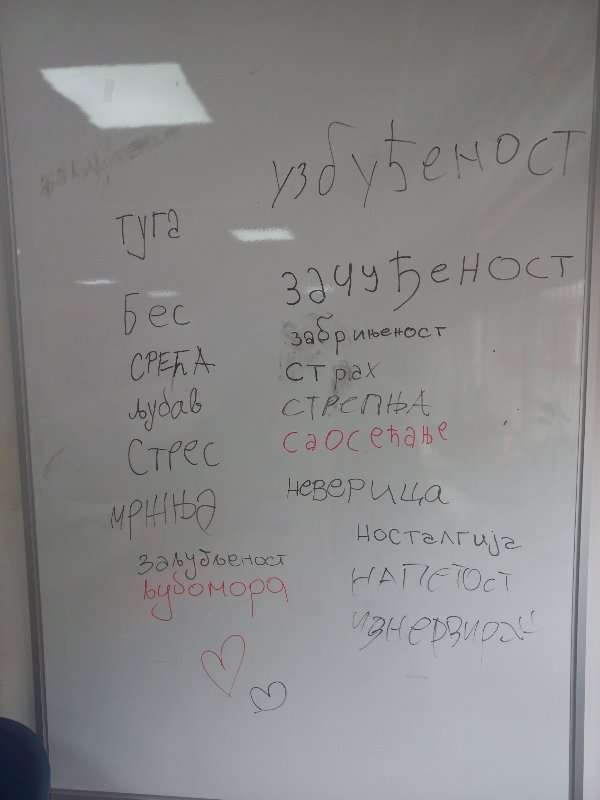 туга
Бес
СРЕЋА
љубав
СТРЕС
мржња
заљубљеност
љубомора
узбуђеност
зачуђеност
забрињеност
страх
СТРЕПЊА
саосећање
неверица
носталгија
НАПЕТОСТ
изнервиран